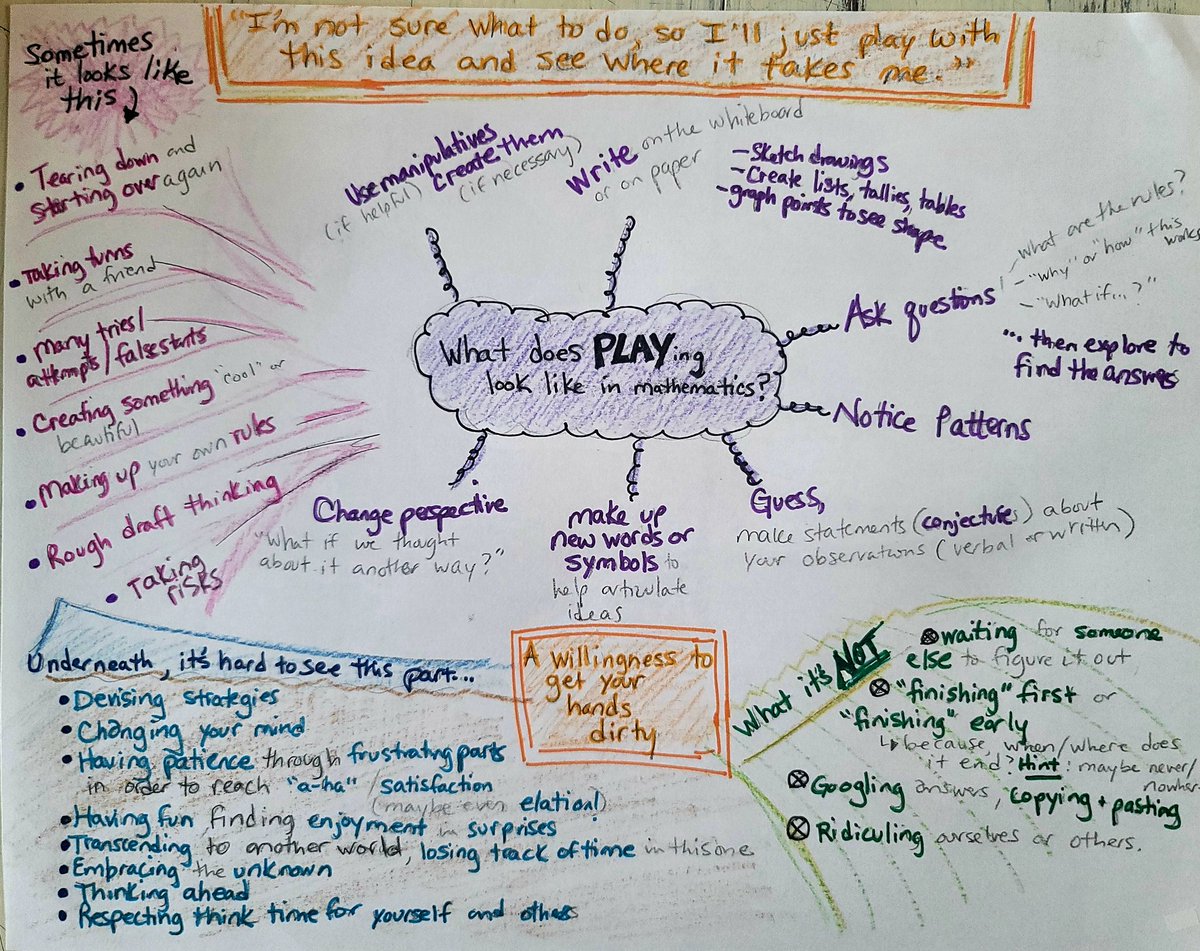 "I'm not sure what to do, so I'll just play with
this idea and see where it takes me."
Sometimes
it looks like
this
• Tearing down and
starting over again
• Taking turns
with a friend
• Many tries/
attempts/false starts
• Creating something "cool" or
beautiful
• Making up your own rules
• Rough draft thinking
• Taking
risks
What does PLAYing
look like in mathematics?
Use manipulatives
(if helpful)
Create them
(if necessary)
Write on the whiteboard
or on paper
- Sketch drawings
- Create lists, tallies, tables
- graph points to see shape
Ask questions
- what are the rules?
- "why" or "how" this
works
- "What if...?"
... then explore to
find the answers
Notice Patterns
Guess,
make statements (conjectures) about
your observations (verbal or written)
make up
new words or
symbols to
help articulate
ideas
Change perspective
"What if we thought
about it another way?"
Underneath, it's hard to see this part...
• Devising strategies
• Changing your mind
• Having patience through frustrating parts
in order to reach "a-ha"/satisfaction
(maybe even elation!)
• Having fun, finding enjoyment in surprises
• Transcending to another world, losing track of time in this one
• Embracing the unknown
• Thinking ahead
• Respecting think time for yourself and others
A willingness to
get your
hands
dirty
What it's NOT
⊗ waiting for someone
else to figure it out
⊗ "finishing" first or
"finishing" early
↳ because, when/where does
it end? Hint: maybe never/
nowhere
⊗ Googling answers, copying + pasting
⊗ Ridiculing ourselves or others.